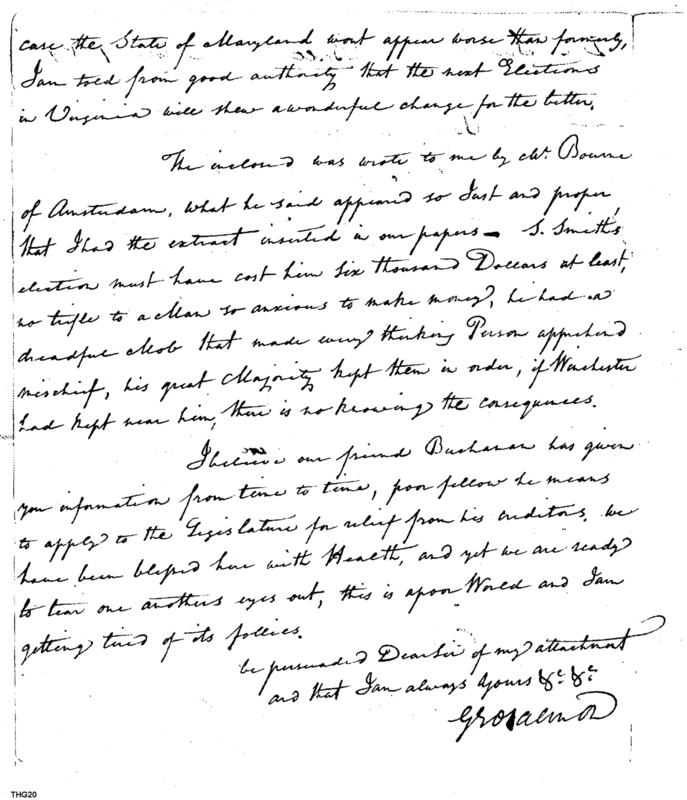 case the State of Maryland wont appear worse than formerly,
I am told from good authority that the next Elections
in Virginia will shew a wonderful change for the better.
The inclosed was wrote to me by Mr. Bourne
of Amsterdam, what he said appeared so Just and proper
that I had the extract inserted in our papers — S. Smiths
election must have cost him Six thousand Dollars at least,
no trifle to a Man so anxious to make money, he had a
dreadful Mob that made every thinking Person apprehend
mischief, his great Majority kept them in order, if Winchester
had kept near him, there is no knowing the consequences.
I believe our friend Buchanan has given
you information from time to time, poor fellow he means
to apply to the Legislature for relief from his creditors. we
have been blessed here with Health, and yet we are ready
to tear one anothers eyes out, this is a poor World and I am
getting tired of its follies.
be persuaded Dear Sir of my attachment
and that I am always Yours &c. &c.
THG20